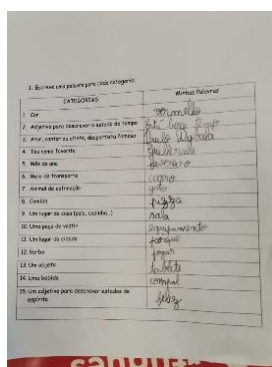 1. Escreve uma palavra para cada categoria.
CATEGORIAS Minhas Palavras
1. Cor vermelho
2. Adjetivo para descrever o estado do tempo Está bom tempo
3. Ator, cantor ou artista, desportista famoso Paulo
4. Teu nome favorito Guilherme
5. Mês do ano fevereiro
6. Meio de transporte carro
7. Animal de estimação gato
8. Comida pizza
9. Um lugar da casa (sala, cozinha..) sala
10. Uma peça de vestir equipamento
11. Um lugar da cidade parque
12. Verbo jogar
13. Um objeto tablete
14. Uma bebida compal
15. Um adjetivo para descrever estados de espírito feliz